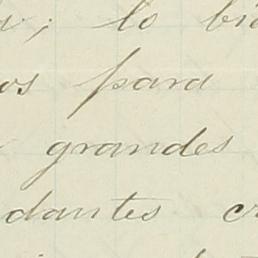 ; lo
os para
grandes
dantes